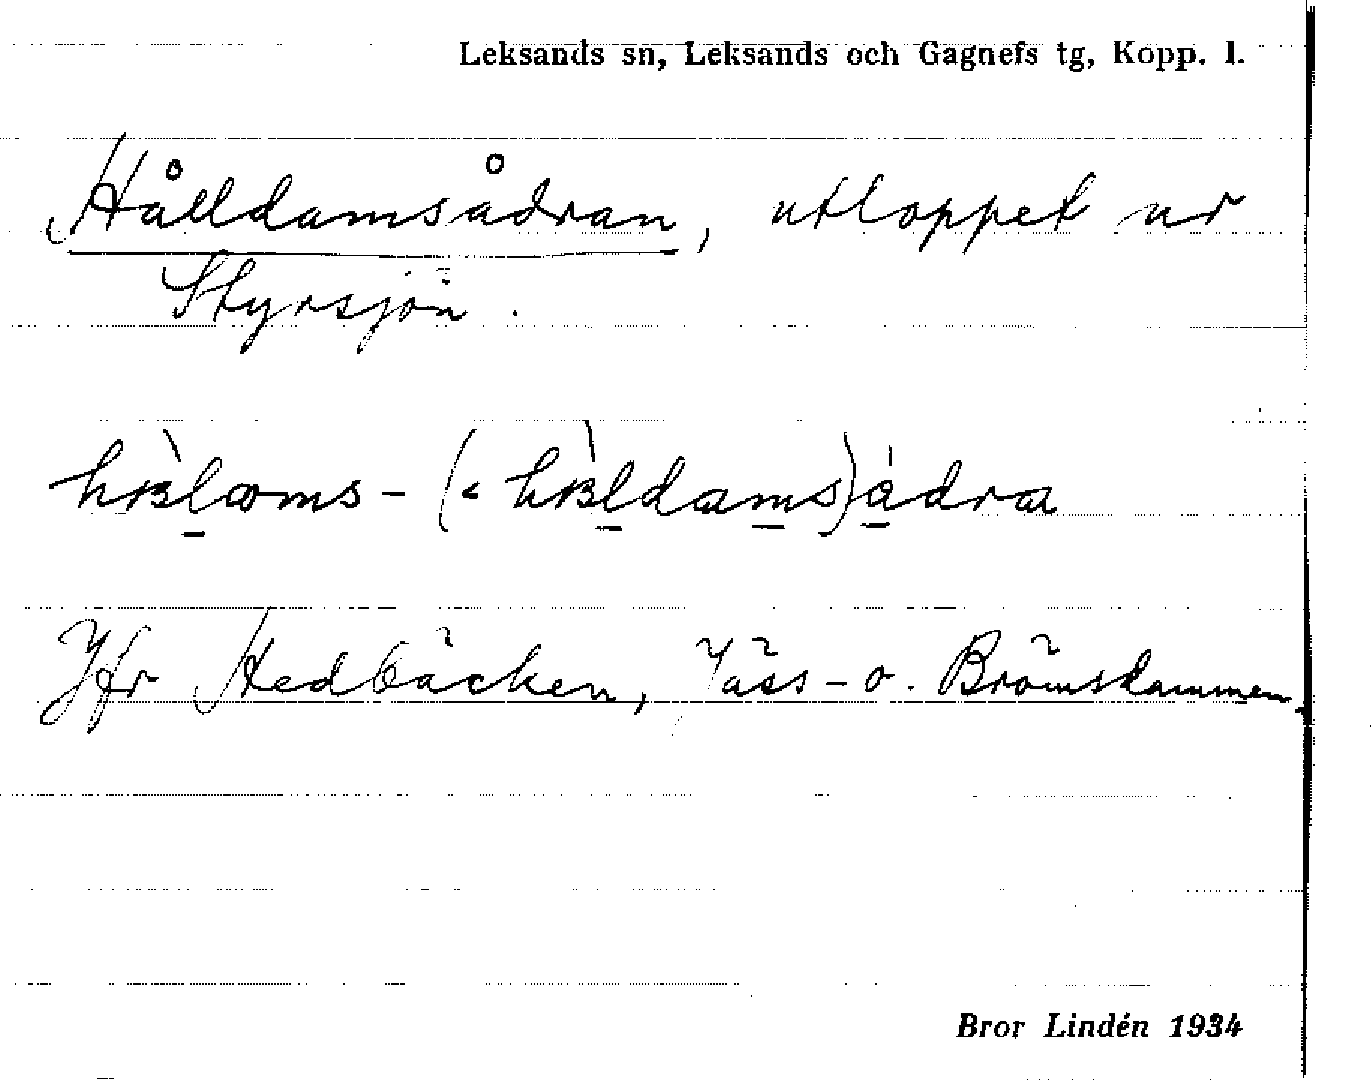 Leksands sn, Leksands och Gagnefs tg, Kopp. l.
Hålldamsådran, utloppet ur
Styrsjön.
Jfr Hedbäcken, Jäss- o. Brömsdammen.
Bror Lindén 1934